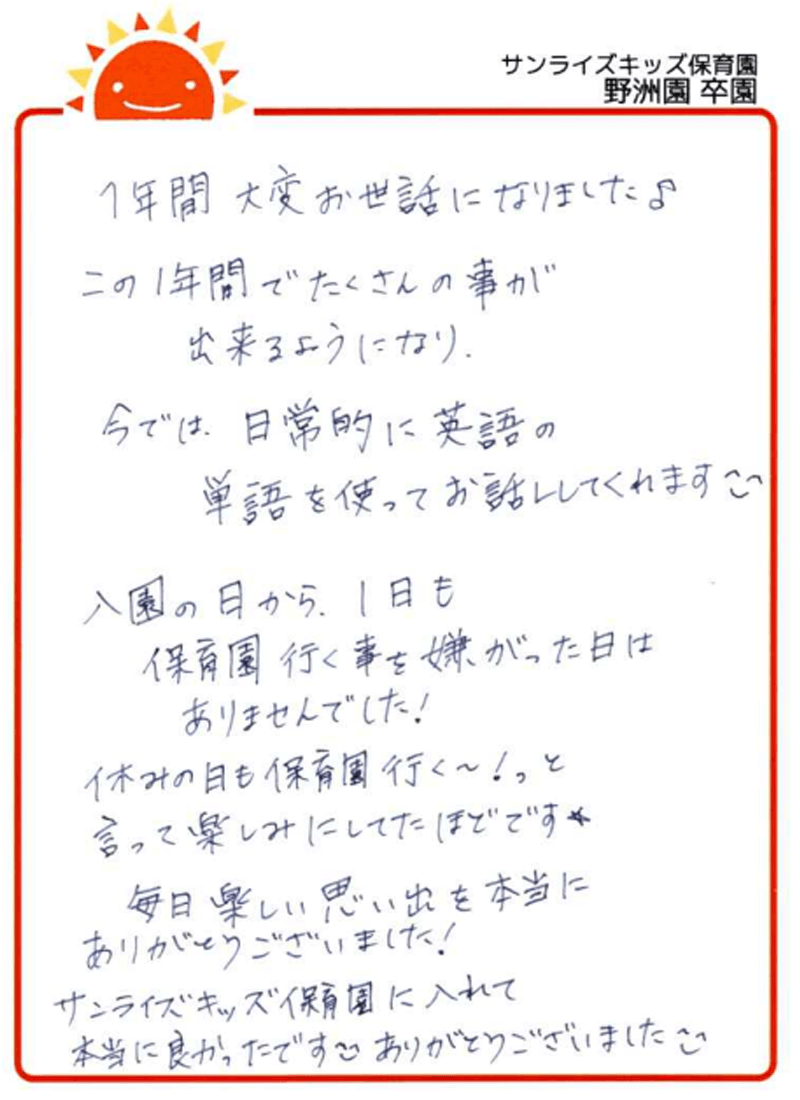 サンライズキッズ保育園
野洲園 卒園
1年間 大変お世話になりました♪
この1年間でたくさんの事が
出来るようになり、
今では、日常的に英語の
単語を使ってお話ししてくれます
入園の日から、1日も
保育園 行く事を嫌がった日は
ありませんでした!
休みの日も保育園 行く～!っと
言って楽しみにしてたほどです★
毎日楽しい思い出を本当に
ありがとうございました!
サンライズキッズ保育園に入れて
本当に良かったです ありがとうございました